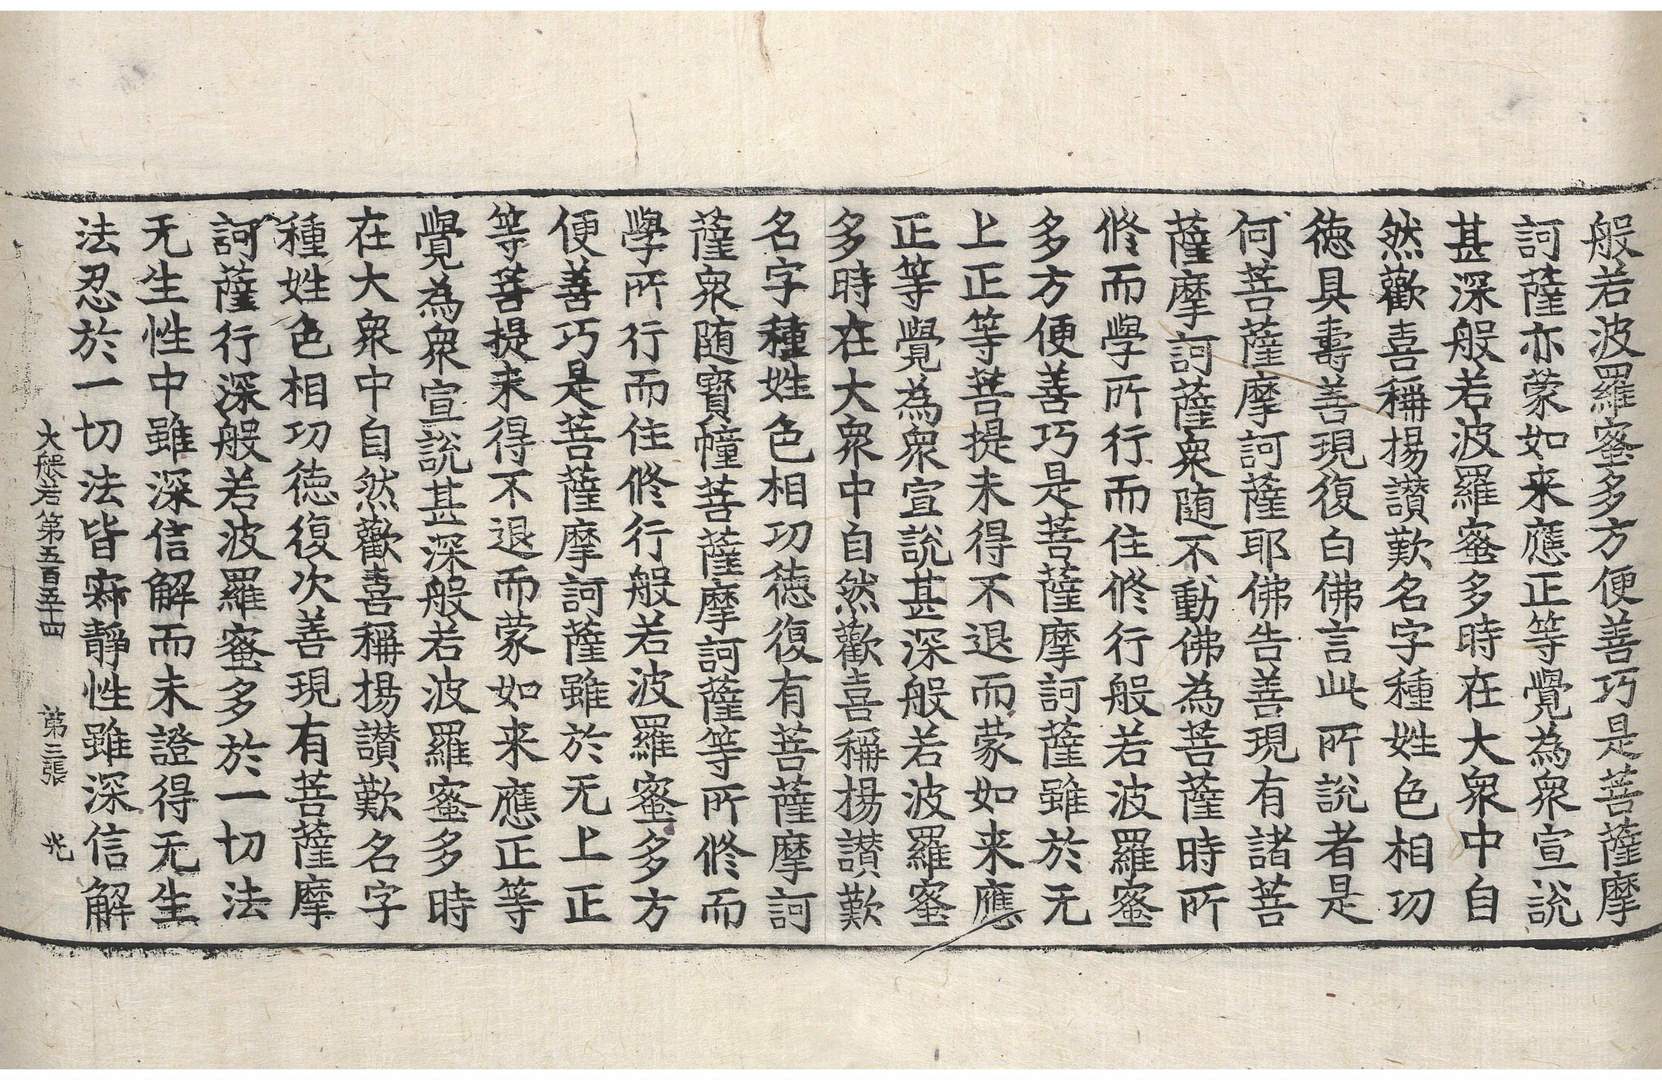 般若波羅蜜多方便善巧是菩薩摩
訶薩亦蒙如来應正等覺為衆宣說
甚深般若波羅蜜多時在大衆中自
然歡喜稱揚讃歎名字種姓色相功
徳具壽善現復白佛言此所說者是
何菩薩摩訶薩耶佛告善現有諸菩
薩摩訶薩衆随不動佛為菩薩時所
修而學所行而住修行般若波羅蜜
多方便善巧是菩薩摩訶薩雖於无
上正等菩提未得不退而蒙如来應
正等覺為衆宣說甚深般若波羅蜜
多時在大衆中自然歡喜稱揚讃歎
名字種姓色相功徳復有菩薩摩訶
薩衆随寳幢菩薩摩訶薩等所修而
學所行而住修行般若波羅蜜多方
便善巧是菩薩摩訶薩雖於无上正
等菩提未得不退而蒙如来應正等
覺為衆宣說甚深般若波羅蜜多時
在大衆中自然歡喜稱揚讃歎名字
種姓色相功徳復次善現有菩薩摩
訶薩行深般若波羅蜜多於一切法
无生性中雖深信解而未證得无生
法忍於一切法皆寂靜性雖深信解
大般若第五百五十四　第三張　光